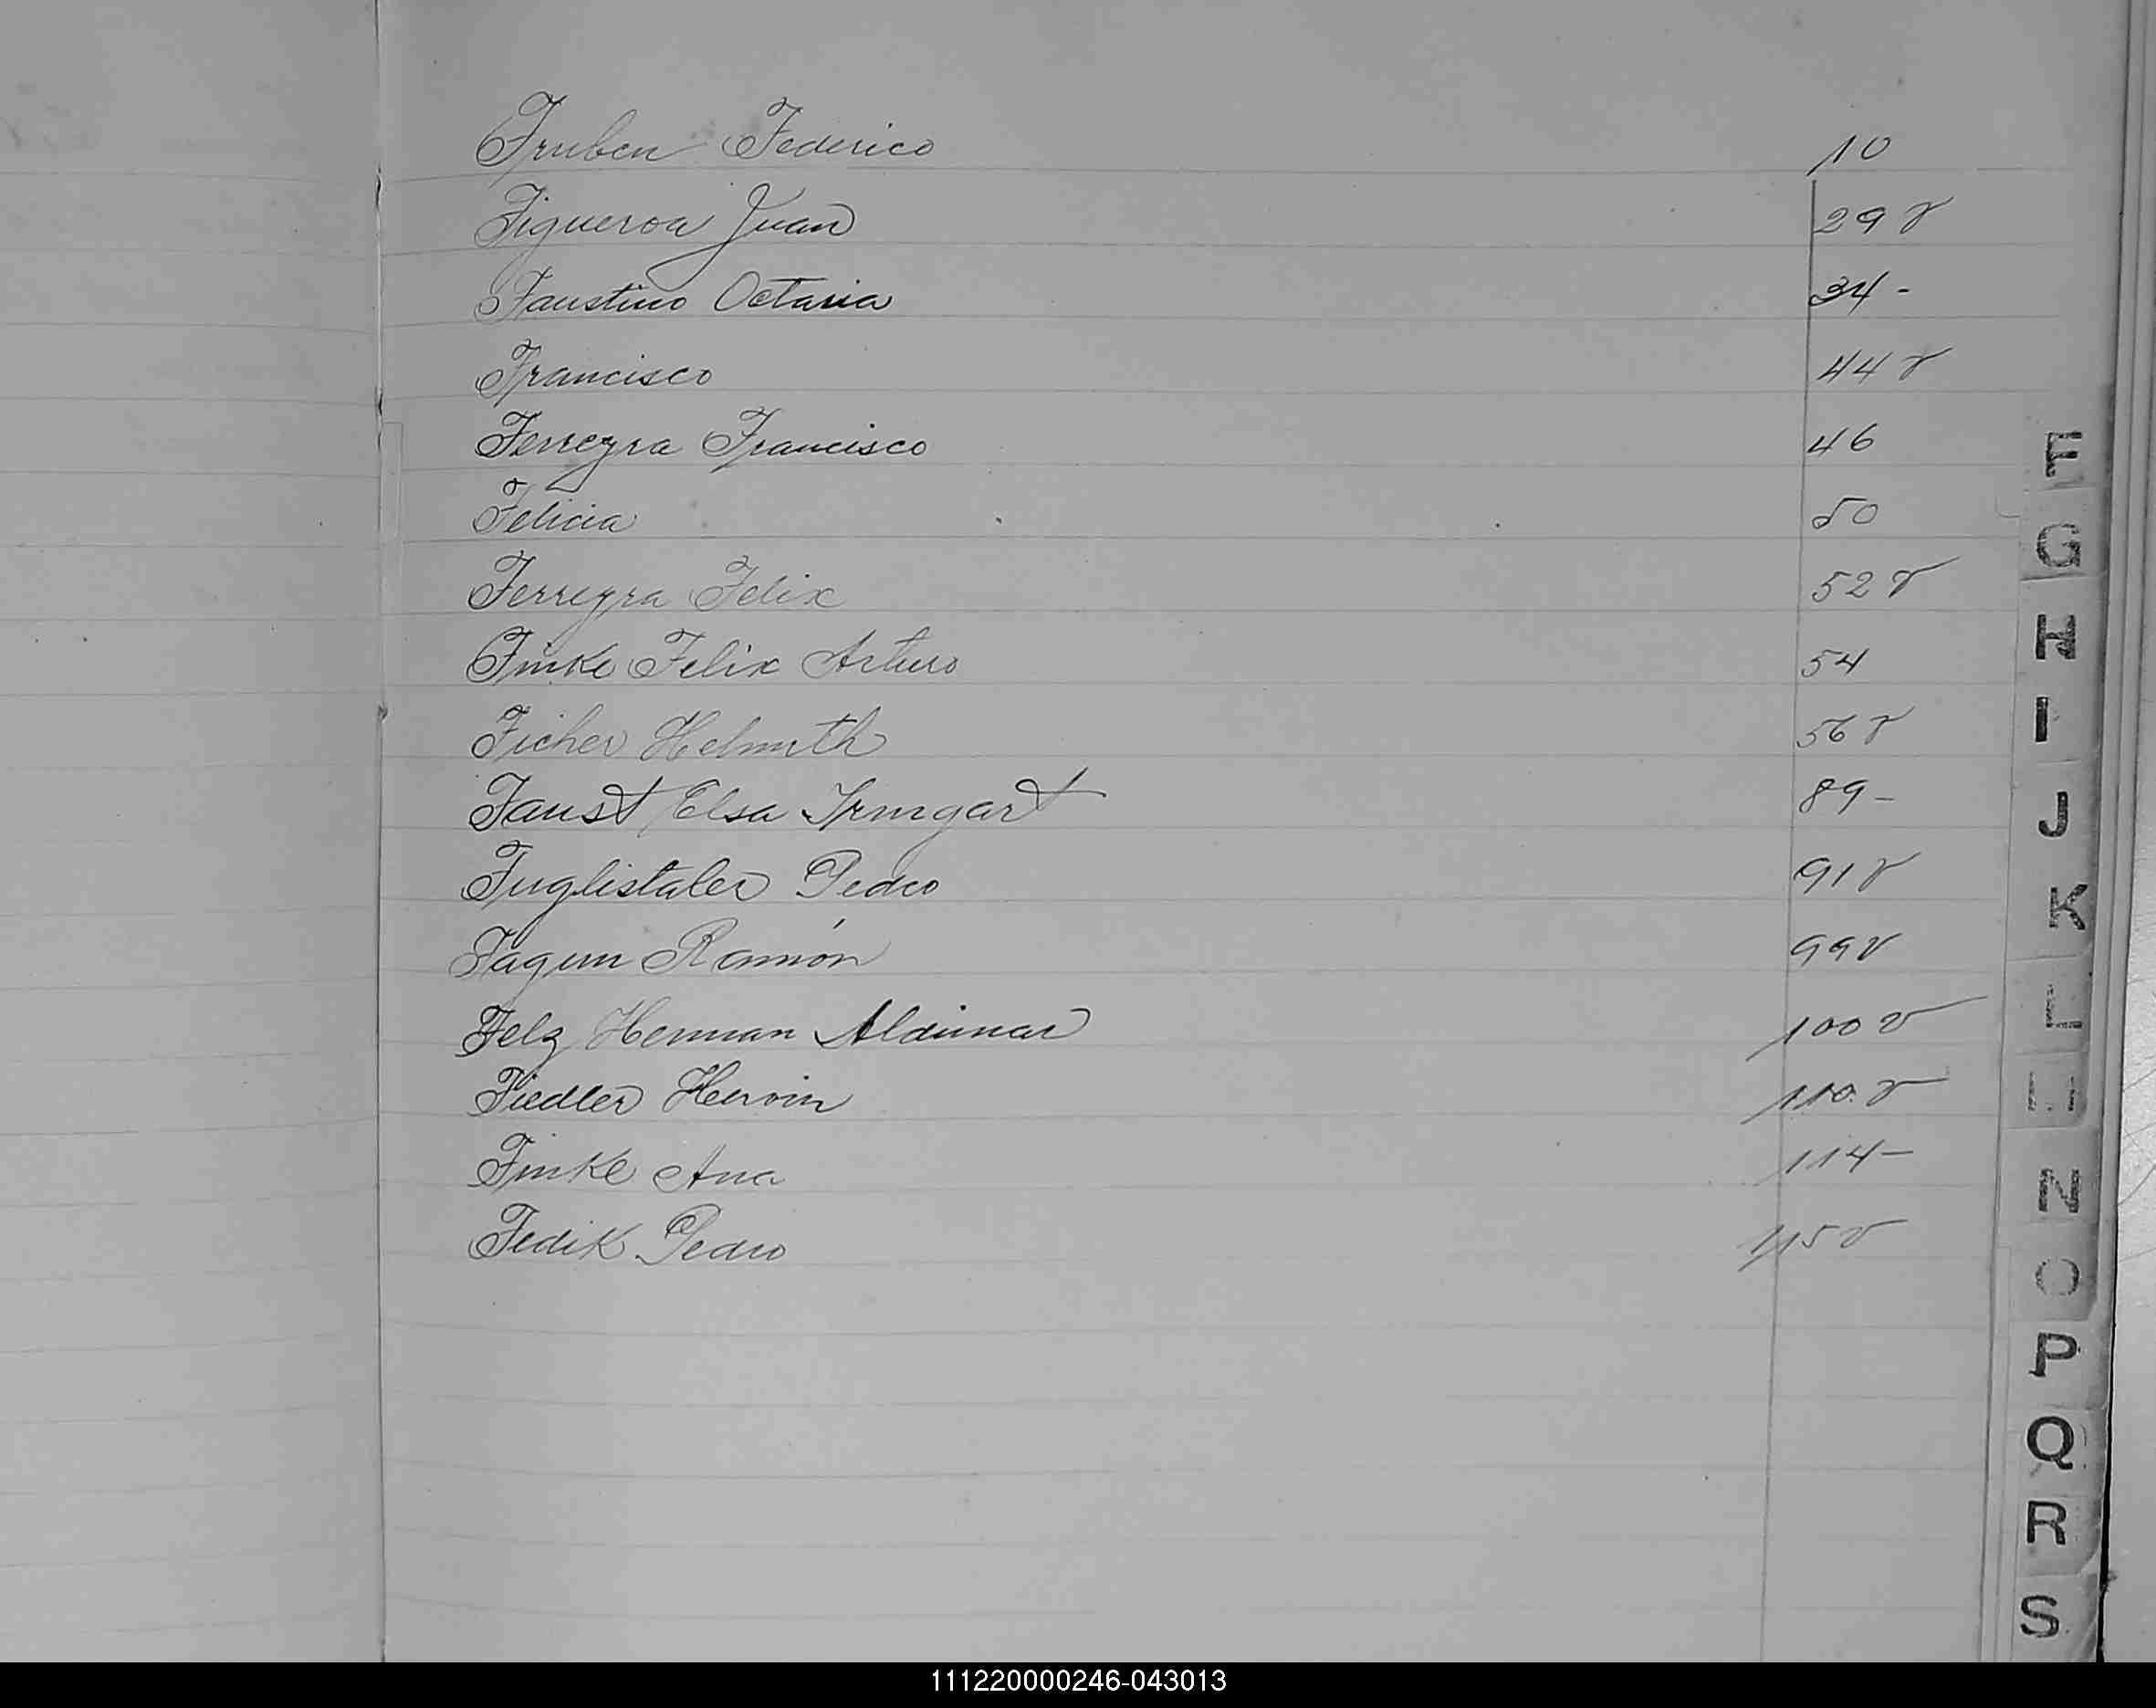 Fruben Federico 10
Figueroa Juan 29 v
Faustino Octavia 34 -
Francisco 44 v
Ferreyra Francisco 46
Felicia 50
Ferreyra Felix 52 v
Finke Felix Arturo 54
Ficher Helmuth 56 v
Faust Elsa Irmgart 89 -
Fuglistaler Pedro 91 v
Fagun Ramón 99 v
Felz Herman Aldimar 100 v
Fiedler Hervin 110 v
Finke Ana 114 -
Fedik Pedro 115 v
F
G
H
I
J
K
L
N
O
P
Q
R
S
111220000246-043013